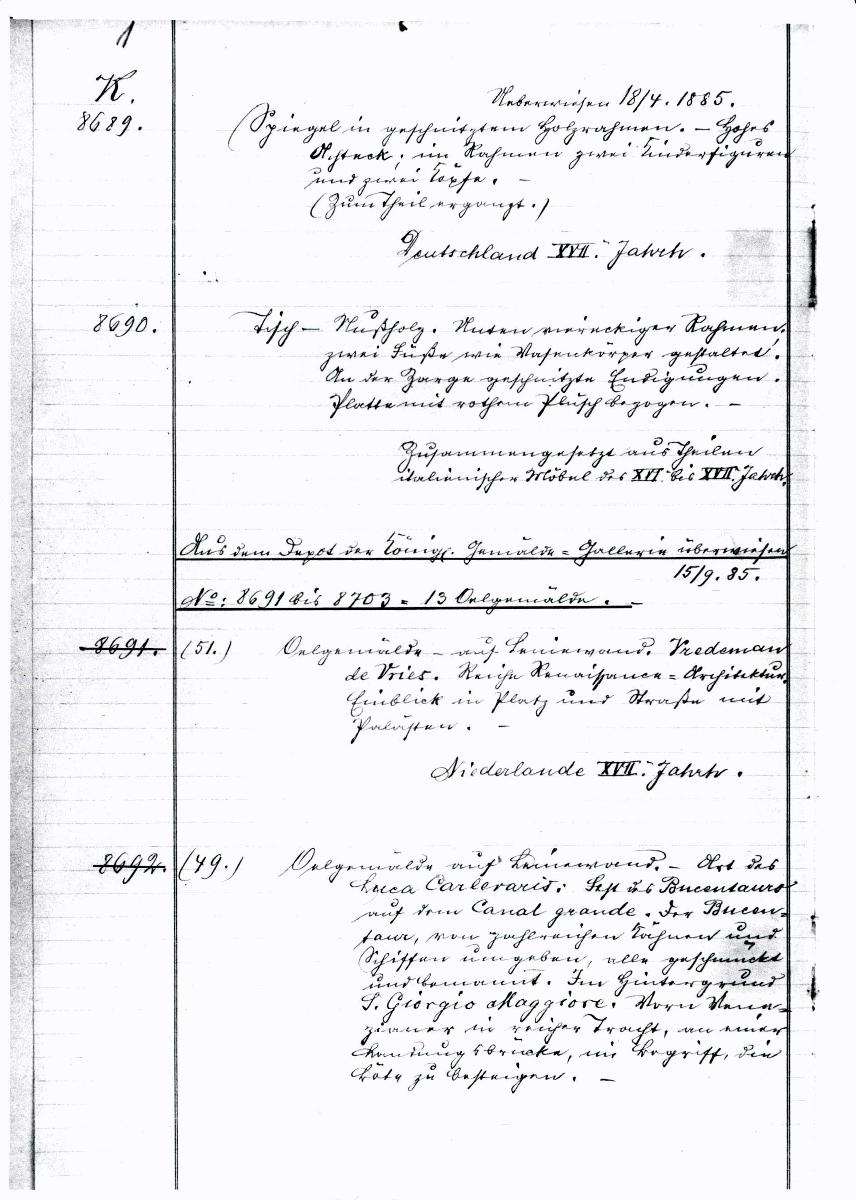 1
K.
Ueberwiesen 18/4. 1885.
8689. (Spiegel in geschnitztem Holzrahmen. – Hohes
Achteck, im Rahmen zwei Kinderfiguren
und zwei Köpfe. –
(Zum Theil ergänzt.)
Deutschland XVII. Jahrh.
8690. Tisch – Nußholz. Unten viereckiger Rahmen,
zwei Füße wie Vasenkörper gestaltet.
An der Zarge geschnitzte Endigungen.
Platte mit rothem Plüsch bezogen. –
Zusammengesetzt aus Theilen
italienischer Möbel des XVI. bis XVII. Jahrh.
Aus dem Depot der Königl. Gemälde-Gallerie überwiesen
15/9. 85.
No: 8691 bis 8703 = 13 Oelgemälde. –
8691. (51.) Oelgemälde – auf Leinewand. Vredeman
de Vries. Reiche Renaissance-Architektur.
Einblick in Platz und Straße mit
Palästen. –
Niederlande XVII. Jahrh.
8692. (49.) Oelgemälde auf Leinewand. – Art des
Luca Carlevaris: Fest des Bucentauro
auf dem Canal grande. Der Bucen-
taur, von zahlreichen Kähnen und
Schiffen umgeben, alle geschmückt
und bemannt. Im Hintergrund
S. Giorgio Maggiore. Vorn Vene-
zianer in reicher Tracht, an einer
Landungsbrücke, im Begriff, die
Böte zu besteigen. –